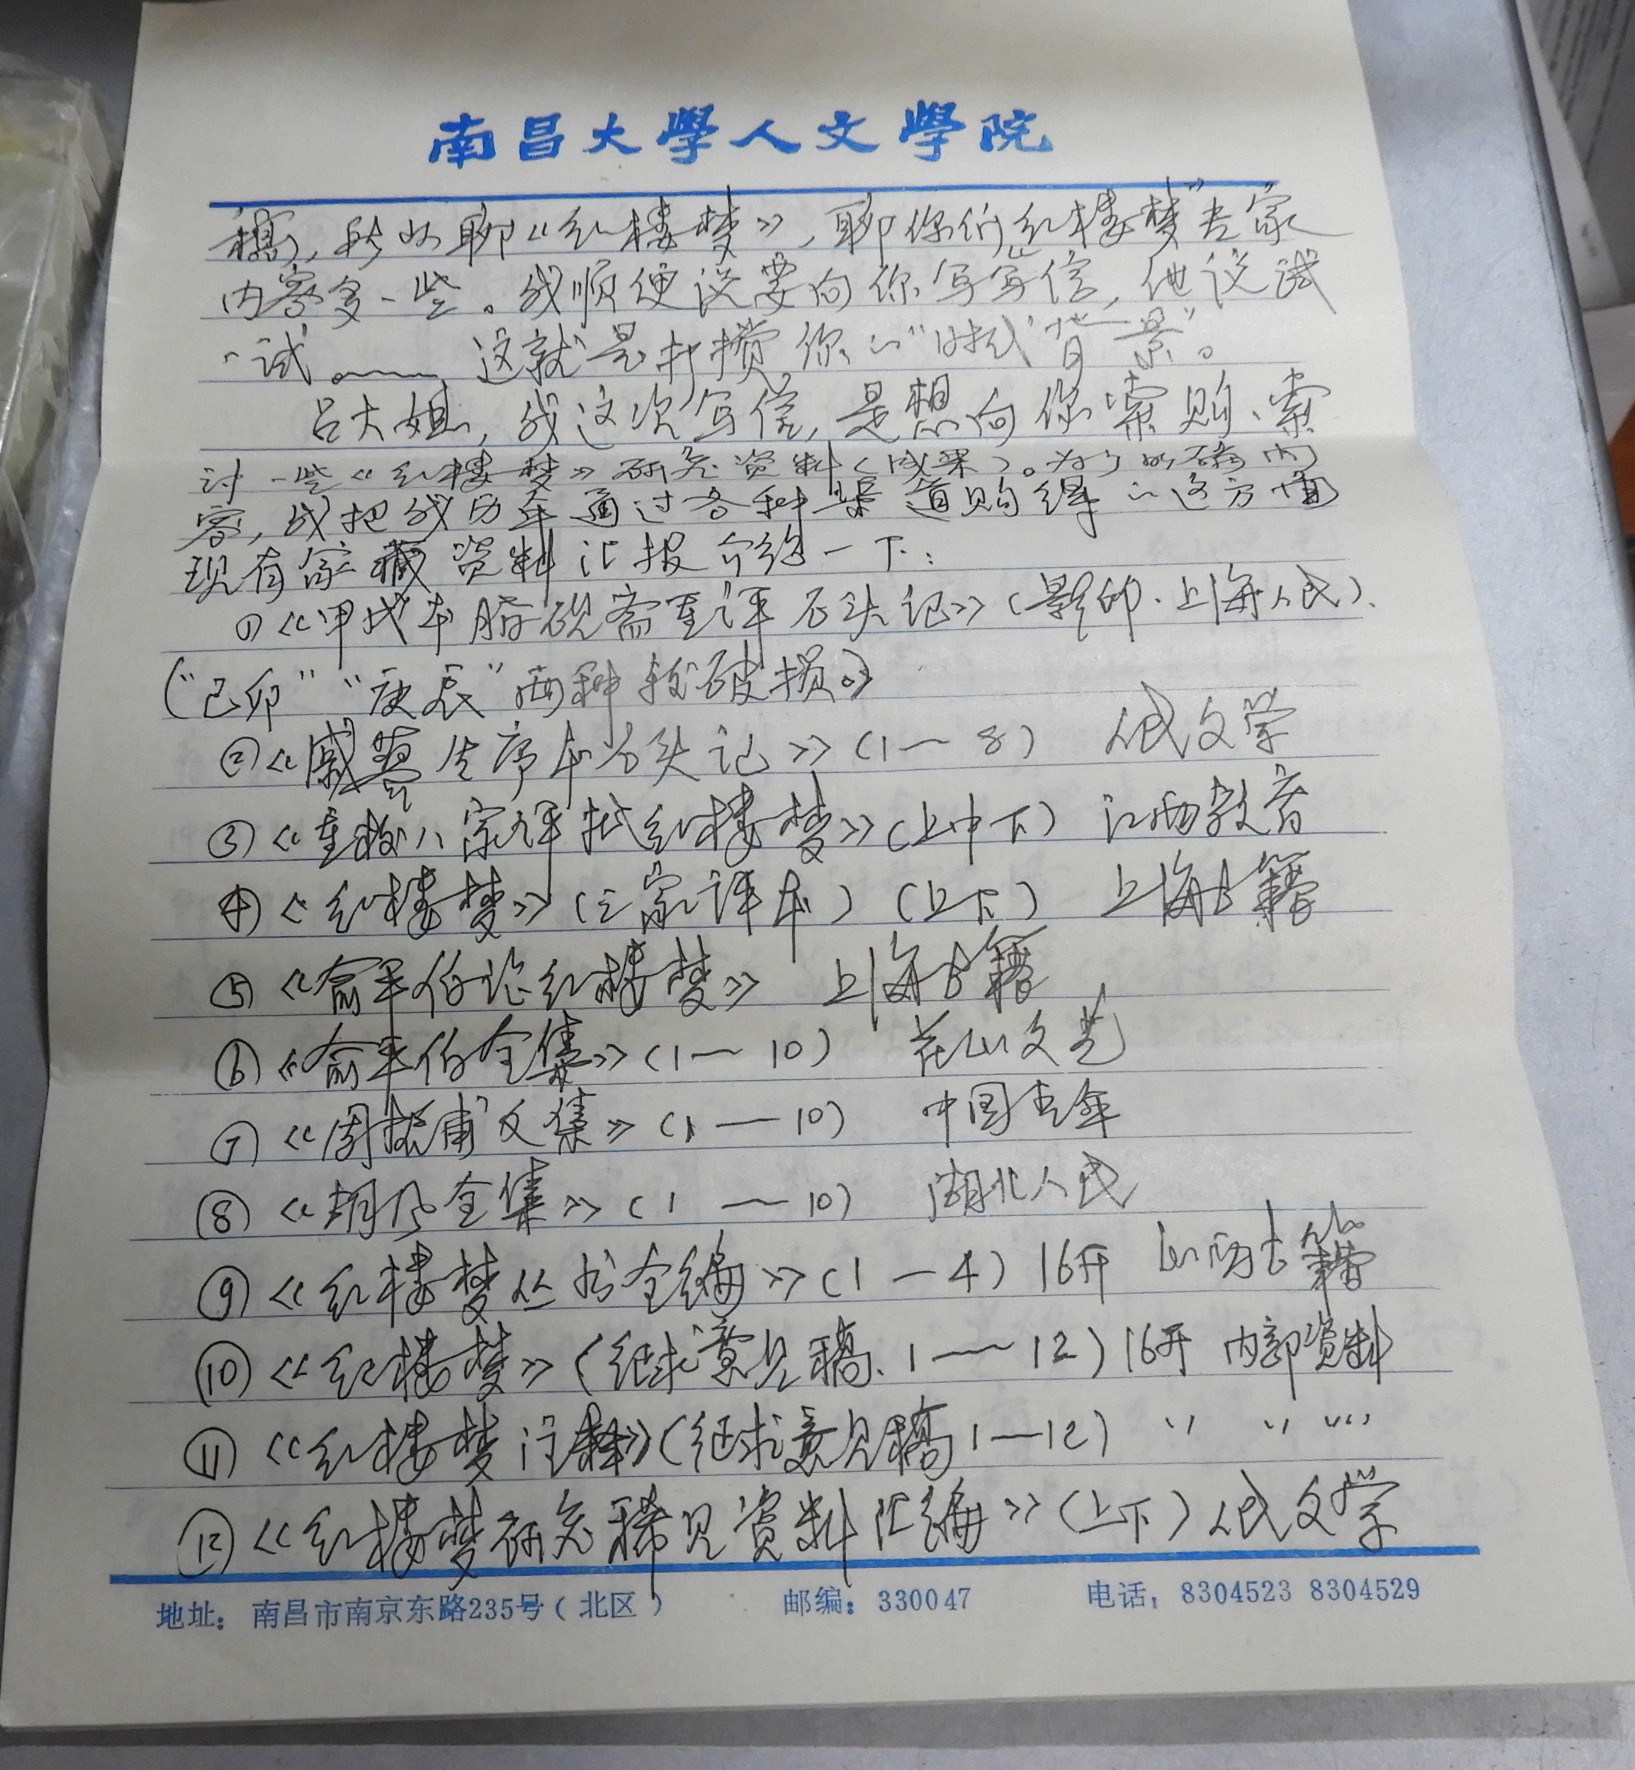 南昌大學人文學院
稿，所以聊《红楼梦》，聊你们“红楼梦”专家
内容多一些。我顺便说要向你写写信，他说试
一试。——这就是打搅你的“时代背景”。
吕大姐，我这次写信，是想向你索购、索
讨一些《红楼梦》研究资料（成果）。为了明确内
容，我把我历年通过各种渠道购得的这方面
现有家藏资料汇报介绍一下：
①《甲戌本脂砚斋重评石头记》（影印·上海人民）、
（“己卯”“庚辰”两种较破损。）
②《戚蓼生序本石头记》（1—8） 人民文学
③《重校八家评批红楼梦》（上中下） 江西教育
④《红楼梦》（三家评本）（上下） 上海古籍
⑤《俞平伯论红楼梦》 上海古籍
⑥《俞平伯全集》（1—10） 花山文艺
⑦《周振甫文集》（1—10） 中国青年
⑧《胡风全集》（1—10） 湖北人民
⑨《红楼梦丛书全编》（1—4）16开 江西古籍
⑩《红楼梦》（征求意见稿、1—12）16开 内部资料
⑪《红楼梦注释》（征求意见稿1—12） 〃 〃 〃〃
⑫《红楼梦研究稀见资料汇编》（上下）人民文学
地址：南昌市南京东路235号（北区） 邮编：330047 电话：8304523 8304529